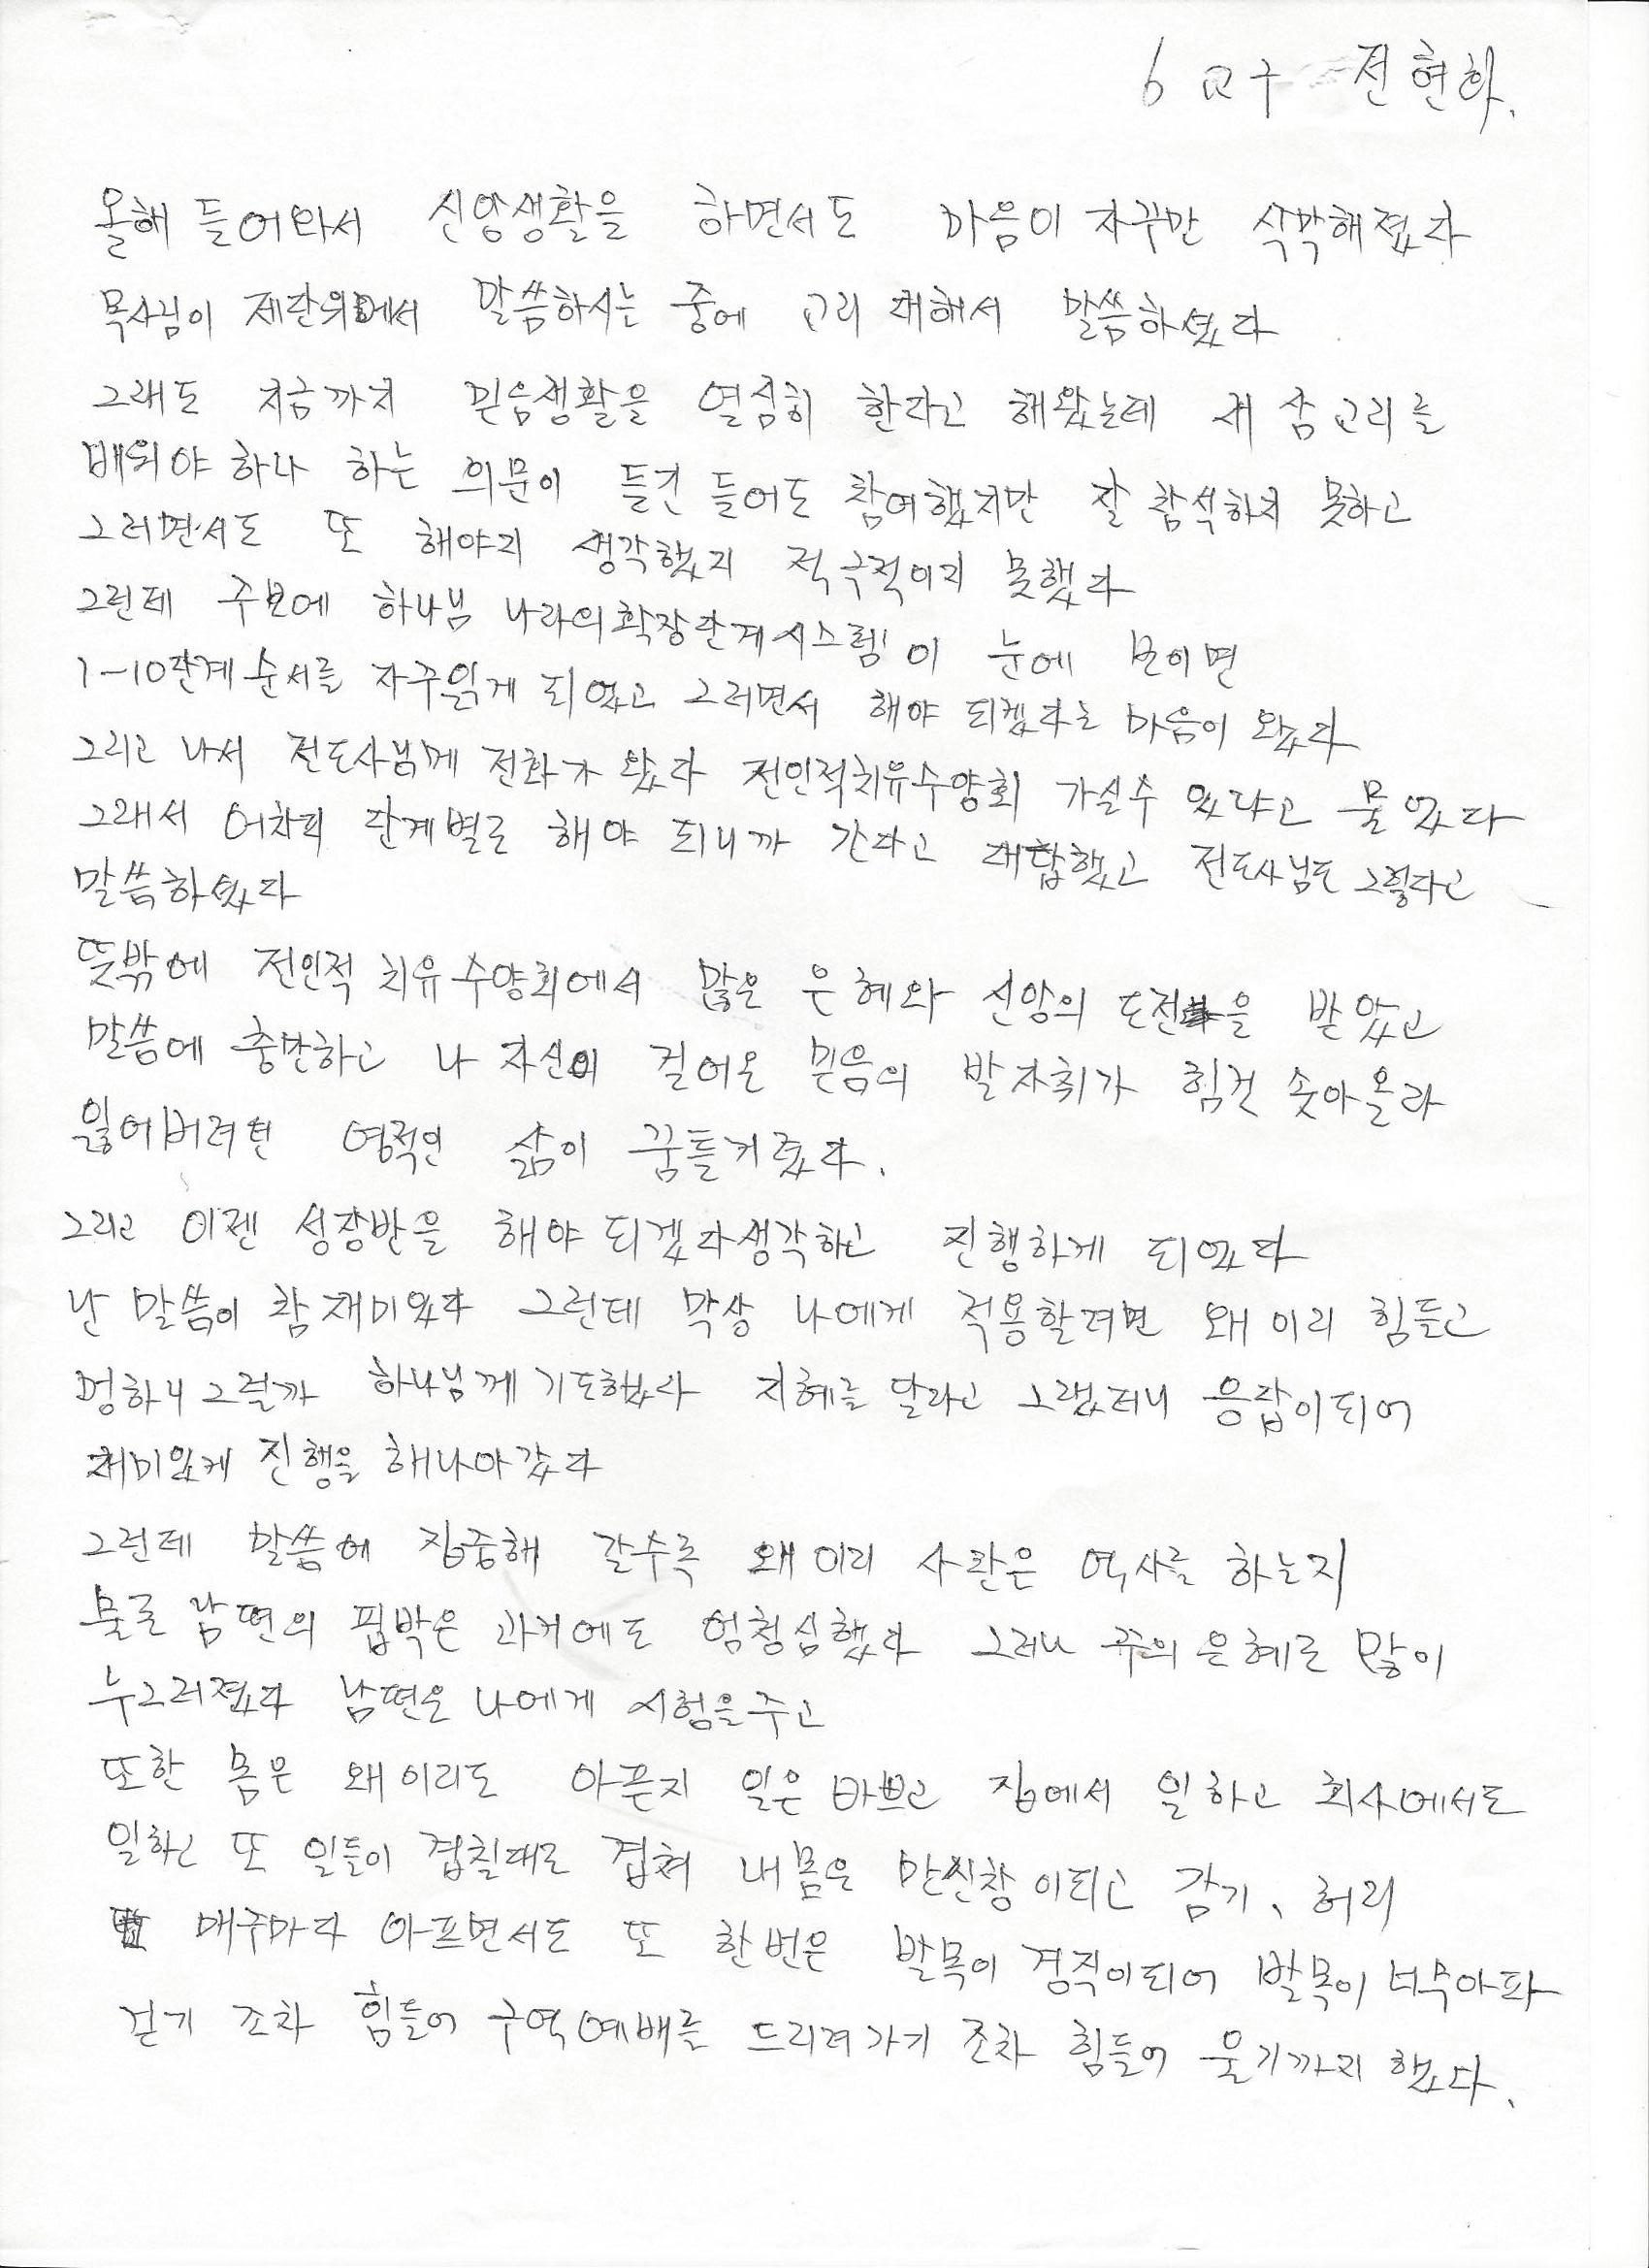 6 교구 전현하.
올해 들어와서 신앙생활을 하면서도 마음이 자꾸만 삭막해졌다
목사님이 제단위에서 말씀하시는 중에 교리 대해서 말씀하셨다
그래도 지금까지 믿음생활을 열심히 한다고 해왔는데 새 삼 교리를
배워야 하나 하는 의문이 들긴 들어도 참여했지만 잘 참석하지 못하고
그러면서도 또 해야지 생각했지 적극적이지 못했다
그런데 주보에 하나님 나라의 확장단계시스템이 눈에 보이면
1-10단계 순서를 자주읽게 되었고 그러면서 해야 되겠다는 마음이 왔다
그리고 나서 전도사님께 전화가 왔다 전인적치유수양회 가실수 있냐고 물었다
그래서 어차피 단계별로 해야 되니까 간다고 대답했고 전도사님도 그렇다고
말씀하셨다
뜻밖에 전인적 치유수양회에서 많은 은혜와 신앙의 도전을 받았고
말씀에 충만하고 나 자신의 걸어온 믿음의 발자취가 힘껏 솟아올라
잃어버려던 영적인 삶이 꿈틀거렸다.
그리고 이젠 성장반을 해야 되겠다생각하고 진행하게 되었다
난 말씀이 참 재미있다 그런데 막상 나에게 적용할려면 왜 이리 힘들고
멍하니 그럴까 하나님께 기도했다 지혜를 달라고 그랬더니 응답이되어
재미있게 진행을 해나아갔다
그런데 말씀에 집중해 갈수록 왜 이리 사탄은 역사를 하는지
물론 남편의 핍박은 과거에도 엄청심했다 그러나 주의 은혜로 많이
누그러졌다 남편은 나에게 시험을주고
또한 몸은 왜 이리도 아픈지 일은 바쁘고 집에서 일하고 회사에서도
일하고 또 일들이 겹칠대로 겹쳐 내 몸은 만신창이되고 감기, 허리
매주마다 아프면서도 또 한번은 발목이 경직이되어 발목이 너무아파
걷기 조차 힘들어 구역예배를 드리려가기 조차 힘들어 울기까지 했다.